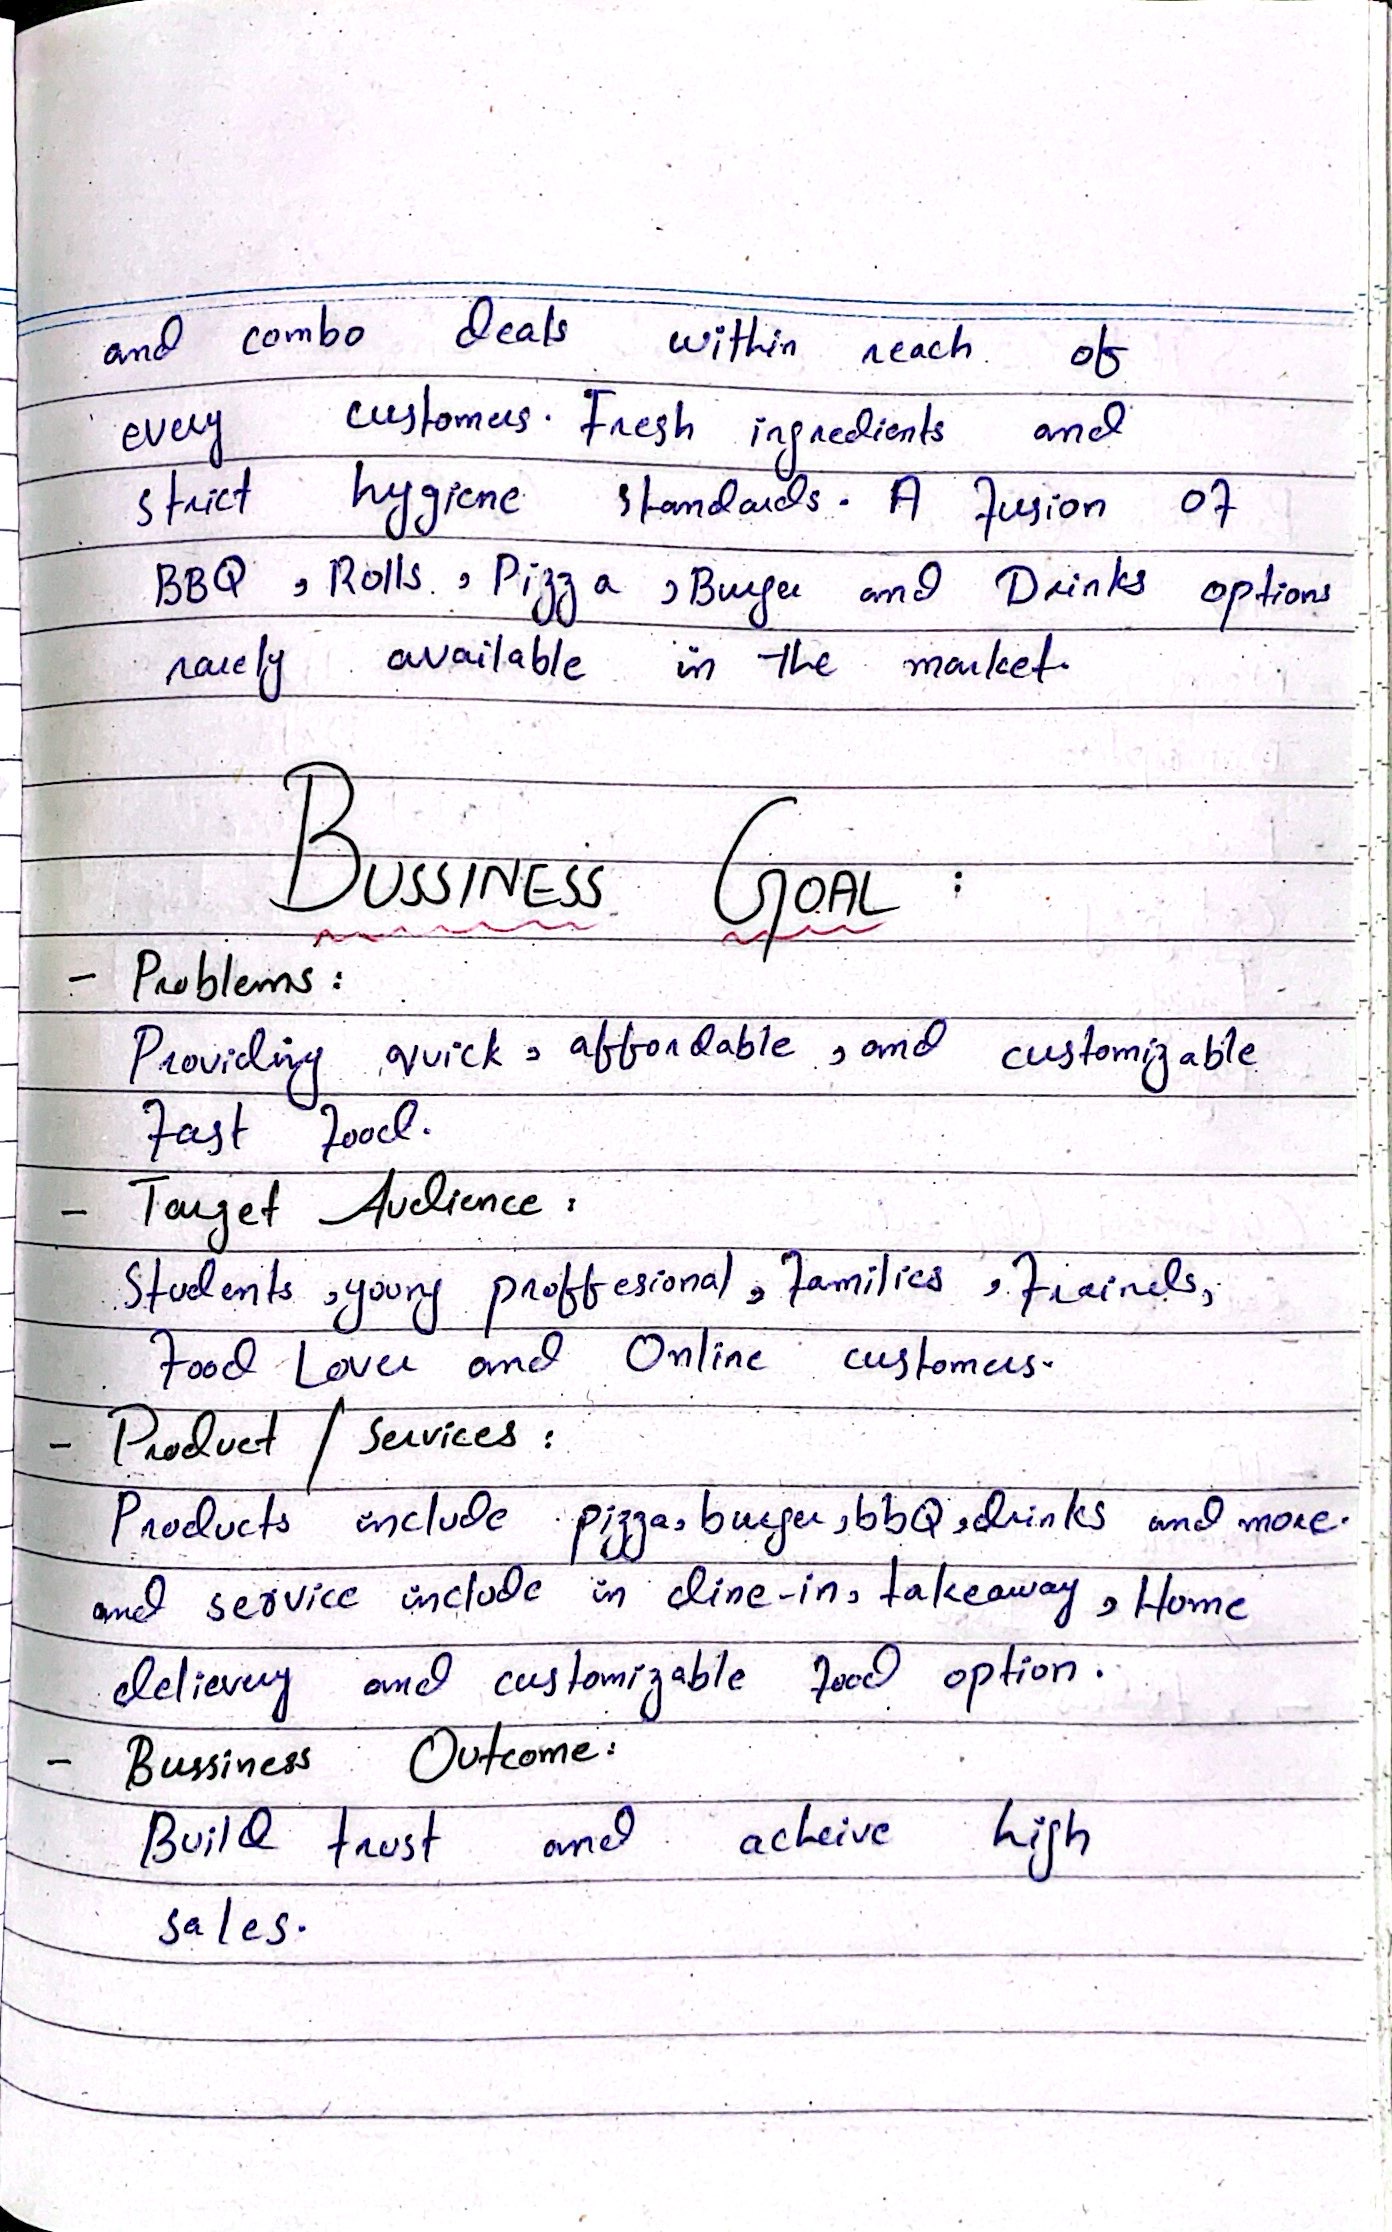 and combo deals within reach of
every customers. Fresh ingredients and
strict hygiene standards. A fusion of
BBQ, Rolls, Pizza, Burger and Drinks options
rarely available in the market.
BUSSINESS GOAL :
- Problems :
Providing quick, affordable, and customizable
fast food.
- Target Audience :
Students, young proffesional, families, frainds,
Food Lover and Online customers.
- Product / Services :
Products include pizza, burger, bbQ, drinks and more.
and service include in dine-in, takeaway, Home
delievery and customizable food option.
- Bussiness Outcome :
Build trust and acheive high
sales.